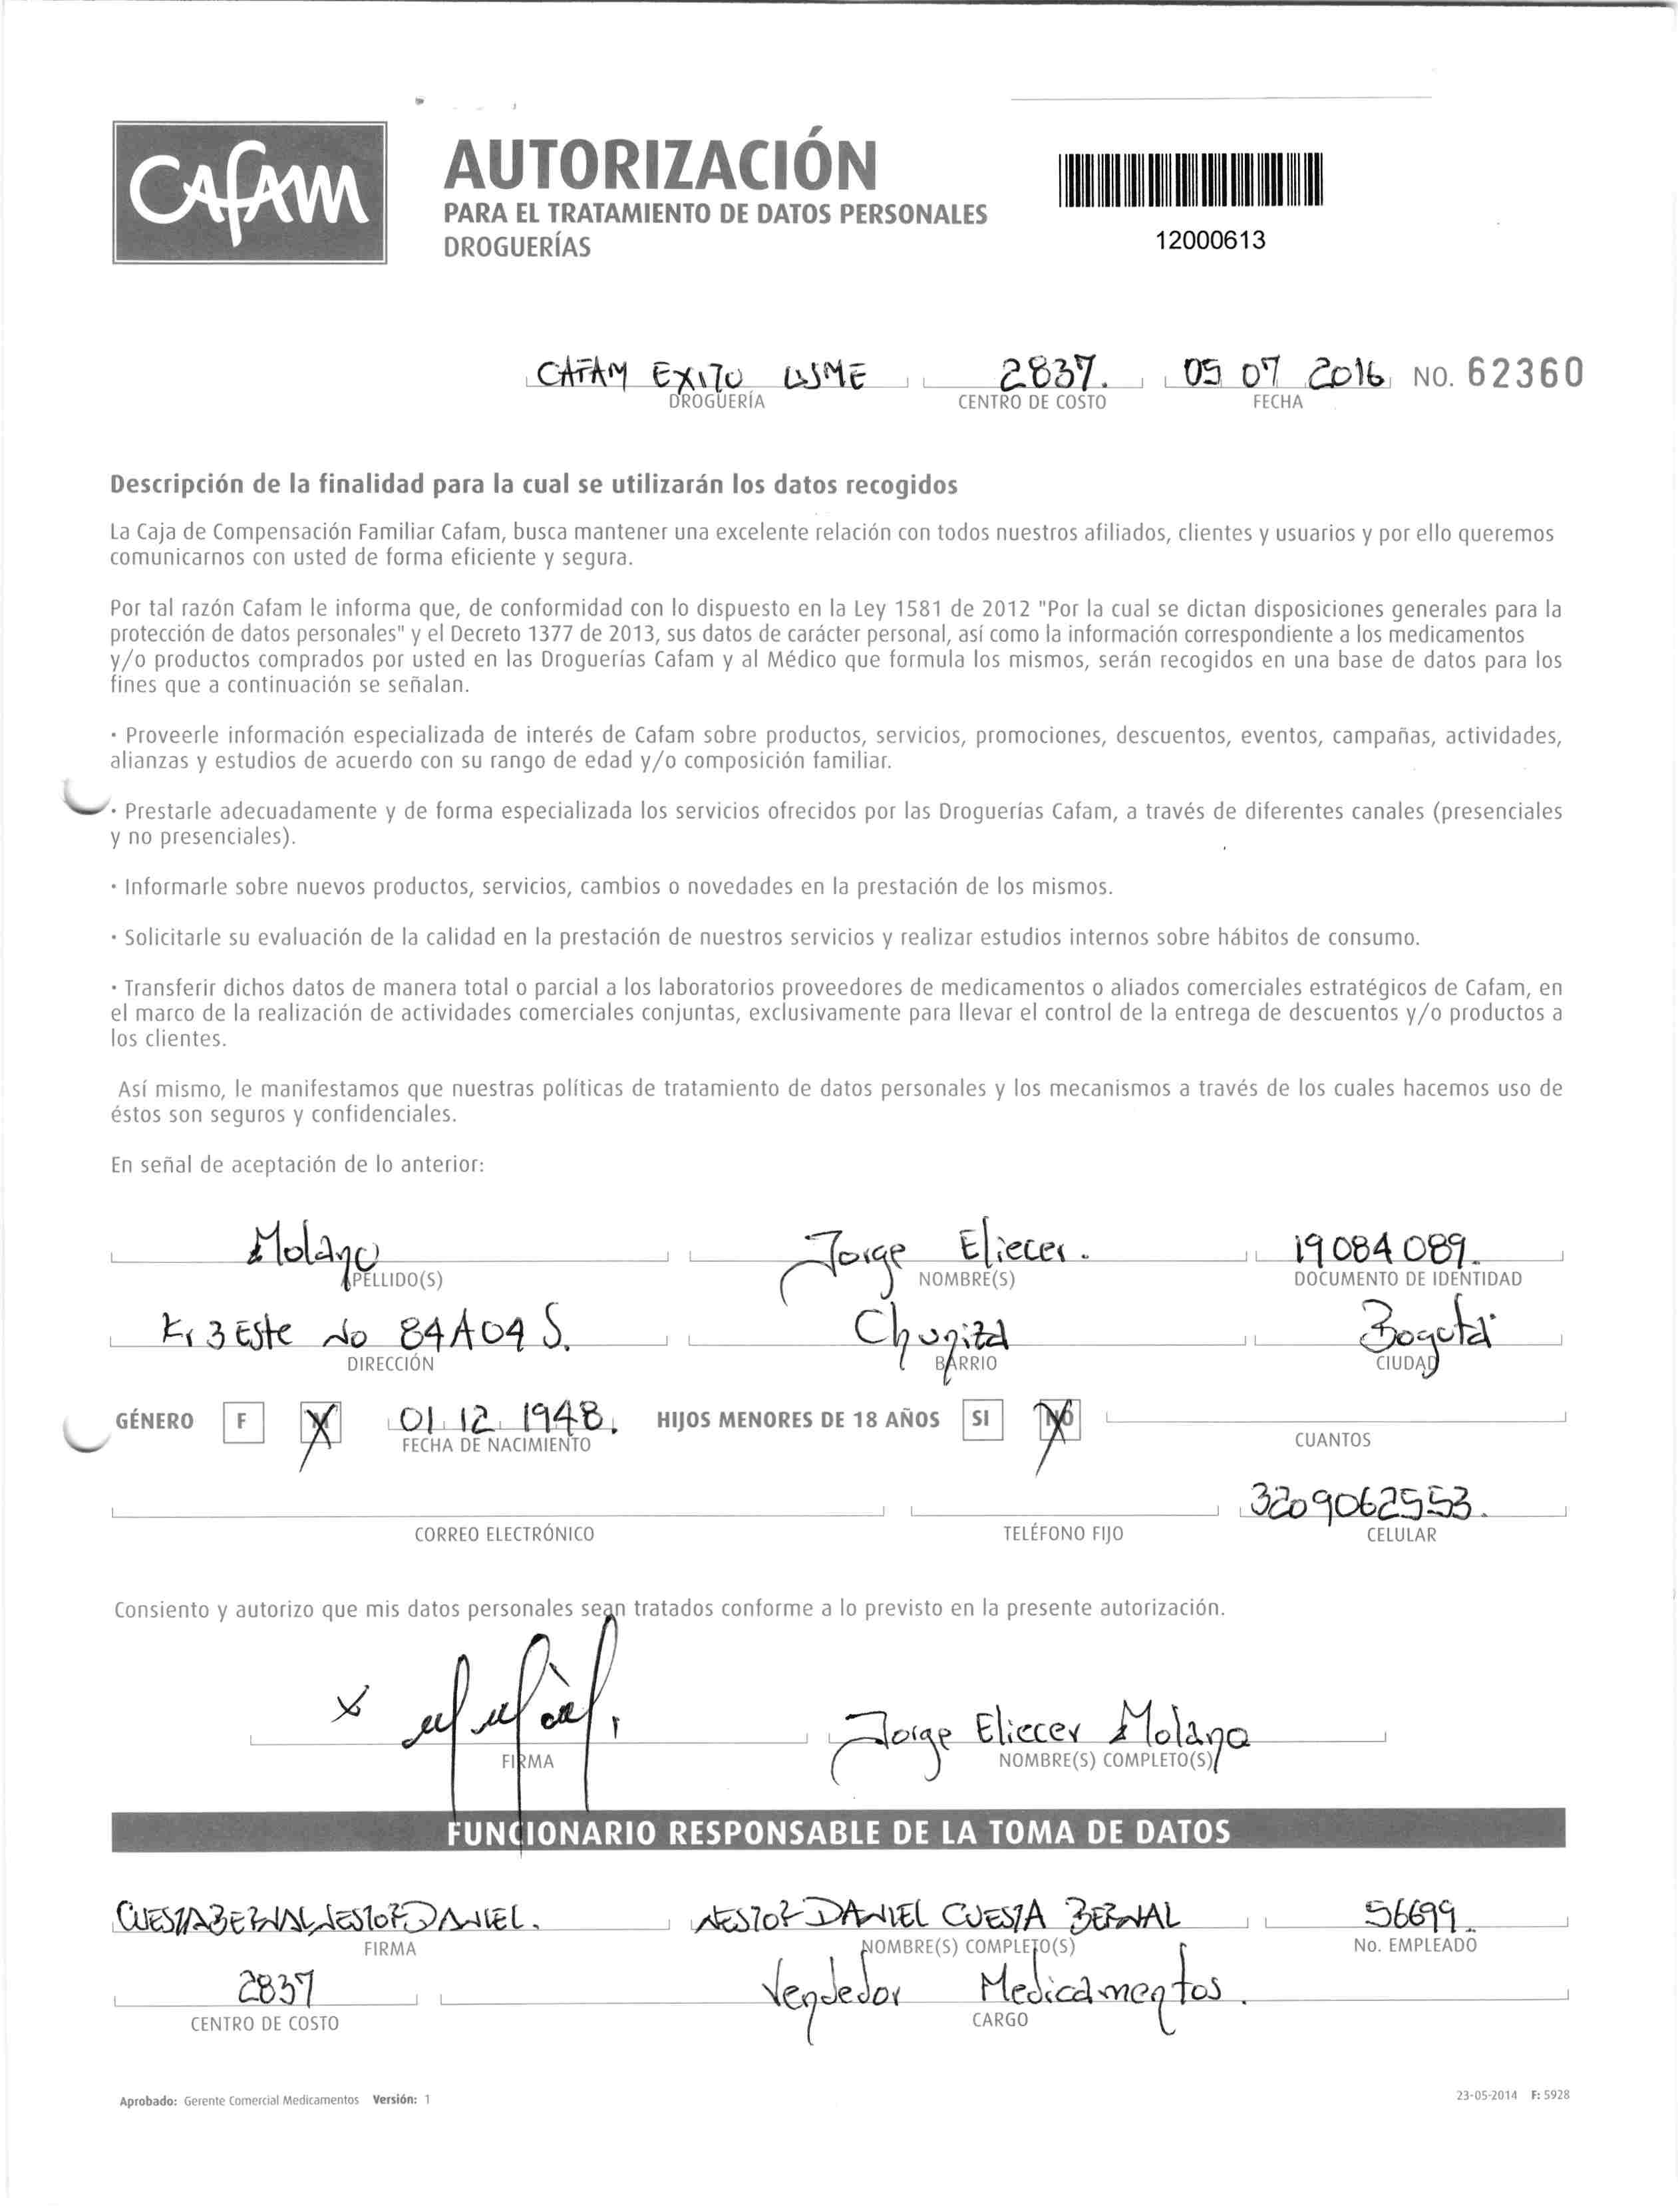 CAFAM
AUTORIZACIÓN
PARA EL TRATAMIENTO DE DATOS PERSONALES
DROGUERÍAS
12000613
CAFAM EXITO USME 2837. 05 07 2016 NO. 62360
DROGUERÍA CENTRO DE COSTO FECHA
Descripción de la finalidad para la cual se utilizarán los datos recogidos
La Caja de Compensación Familiar Cafam, busca mantener una excelente relación con todos nuestros afiliados, clientes y usuarios y por ello queremos
comunicarnos con usted de forma eficiente y segura.
Por tal razón Cafam le informa que, de conformidad con lo dispuesto en la Ley 1581 de 2012 "Por la cual se dictan disposiciones generales para la
protección de datos personales" y el Decreto 1377 de 2013, sus datos de carácter personal, así como la información correspondiente a los medicamentos
y/o productos comprados por usted en las Droguerías Cafam y al Médico que formula los mismos, serán recogidos en una base de datos para los
fines que a continuación se señalan.
· Proveerle información especializada de interés de Cafam sobre productos, servicios, promociones, descuentos, eventos, campañas, actividades,
alianzas y estudios de acuerdo con su rango de edad y/o composición familiar.
· Prestarle adecuadamente y de forma especializada los servicios ofrecidos por las Droguerías Cafam, a través de diferentes canales (presenciales
y no presenciales).
· Informarle sobre nuevos productos, servicios, cambios o novedades en la prestación de los mismos.
· Solicitarle su evaluación de la calidad en la prestación de nuestros servicios y realizar estudios internos sobre hábitos de consumo.
· Transferir dichos datos de manera total o parcial a los laboratorios proveedores de medicamentos o aliados comerciales estratégicos de Cafam, en
el marco de la realización de actividades comerciales conjuntas, exclusivamente para llevar el control de la entrega de descuentos y/o productos a
los clientes.
Así mismo, le manifestamos que nuestras políticas de tratamiento de datos personales y los mecanismos a través de los cuales hacemos uso de
éstos son seguros y confidenciales.
En señal de aceptación de lo anterior:
Molano Jorge Eliecer. 19084089.
APELLIDO(S) NOMBRE(S) DOCUMENTO DE IDENTIDAD
Kr 3 Este No 84A09 S. Chuniza Bogotá
DIRECCIÓN BARRIO CIUDAD
GÉNERO F X 01 12 1948. HIJOS MENORES DE 18 AÑOS SI NO
FECHA DE NACIMIENTO CUANTOS
3209062553.
CORREO ELECTRÓNICO TELÉFONO FIJO CELULAR
Consiento y autorizo que mis datos personales sean tratados conforme a lo previsto en la presente autorización.
x Jorge Eliecer Molano
FIRMA NOMBRE(S) COMPLETO(S)
FUNCIONARIO RESPONSABLE DE LA TOMA DE DATOS
CUESTA BERNAL NESTOR DANIEL. NESTOR DANIEL CUESTA BERNAL 56699.
FIRMA NOMBRE(S) COMPLETO(S) No. EMPLEADO
2837 Vendedor Medicamentos.
CENTRO DE COSTO CARGO
Aprobado: Gerente Comercial Medicamentos Versión: 1 23-05-2014 F: 5928